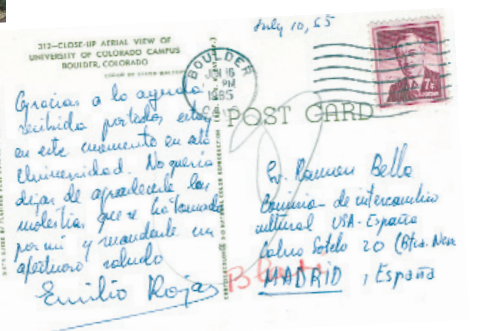 July 10, 65
312—CLOSE-UP AERIAL VIEW OF
UNIVERSITY OF COLORADO CAMPUS
BOULDER, COLORADO
BOULDER
16
PM
1965
7¢
POST CARD
Gracias a lo ayuda
recibida por todos estoy
en este momento en esta
Universidad. No queria
dejar de agradecerle las
molestias que se ha tomado
por mi y mandarle un
afectuoso saludo
Emilio Rojas
Sr. Ramon Bella
Comision de intercambio
cultural USA-España
Calvo Sotelo 20 (Bta.
MADRID, España